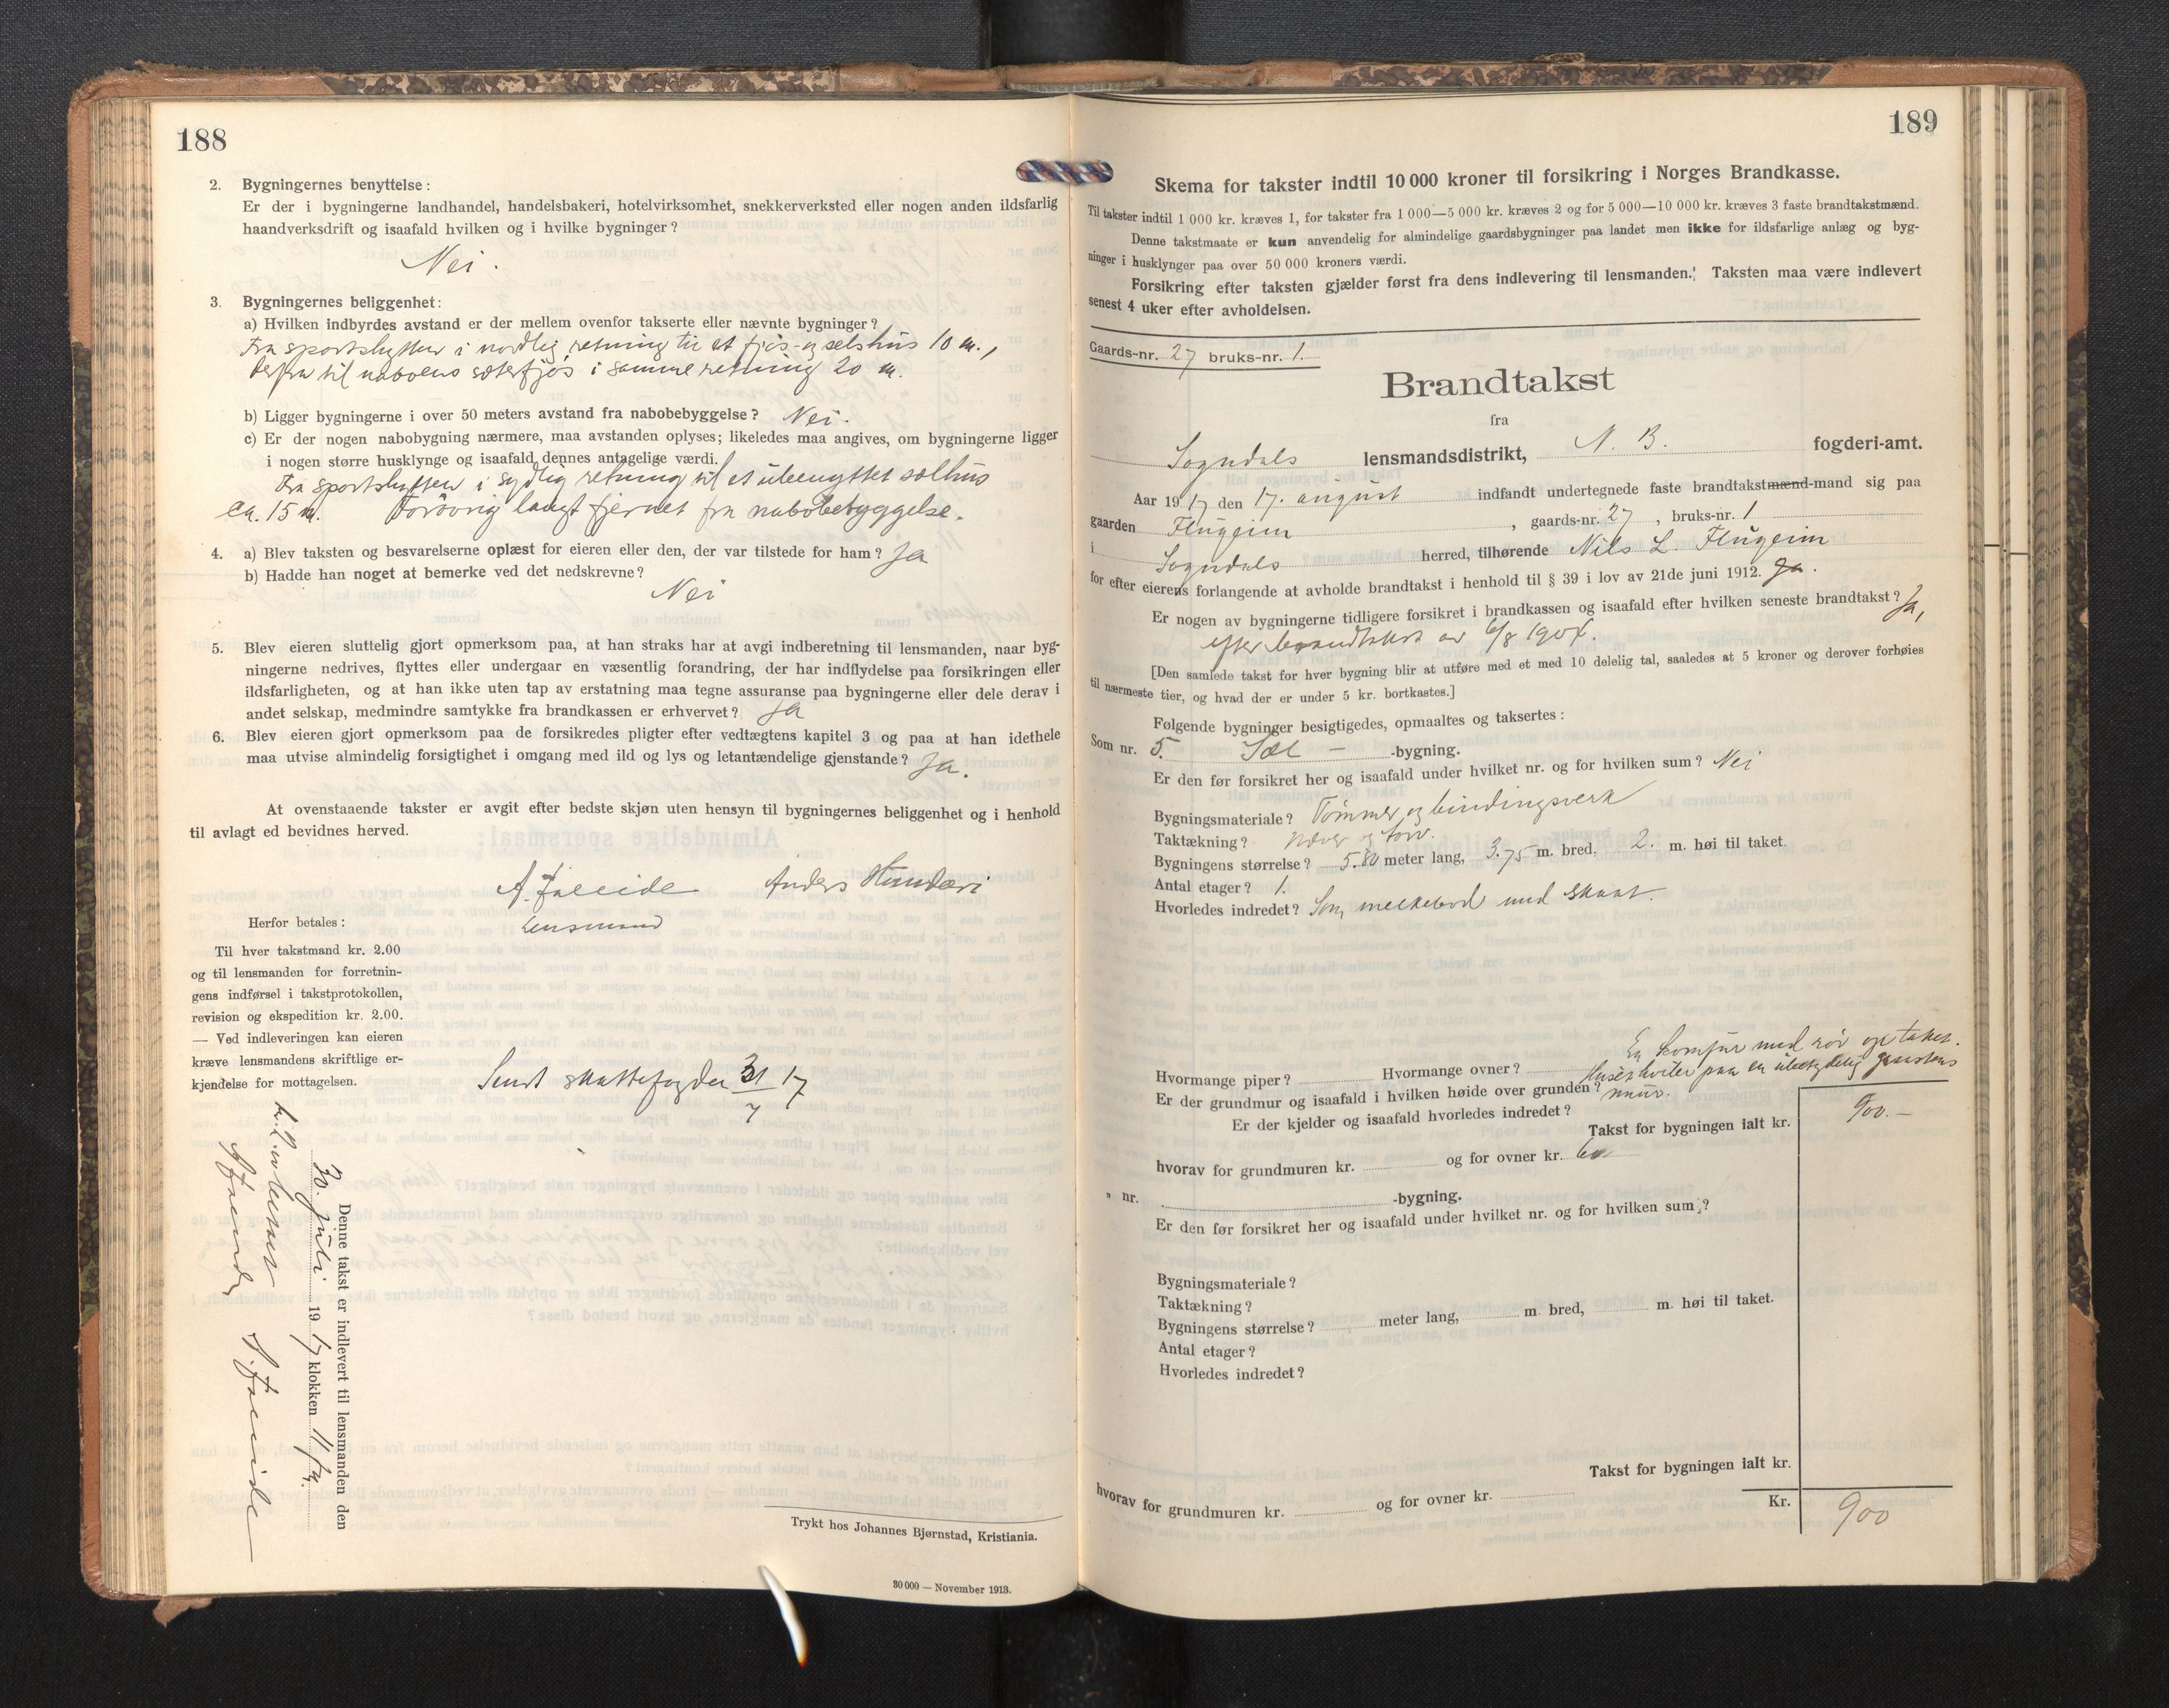 188
2. Bygningernes benyttelse:
Er der i bygningerne landhandel, handelsbakeri, hotelvirksomhet, snekkerverksted eller nogen anden ildsfarlig
haandverksdrift og isaafald hvilken og i hvilke bygninger?
Nei.
3. Bygningernes beliggenhet:
a) Hvilken indbyrdes avstand er der mellem ovenfor takserte eller nævnte bygninger?
Fra sportshytten i nordlig retning til et fjøs- og selshus 10 m.,
derfra til naboens sæterfjøs i samme retning 20 m.
b) Ligger bygningerne i over 50 meters avstand fra nabobebyggelse? Nei.
c) Er der nogen nabobygning nærmere, maa avstanden oplyses; likeledes maa angives, om bygningerne ligger
i nogen større husklynge og isaafald dennes antagelige værdi.
Fra sportshytten i sydlig retning til et ubenyttet sælhus
ca. 15 m. Forøvrig langt fjernet fra nabobebyggelse.
4. a) Blev taksten og besvarelserne oplæst for eieren eller den, der var tilstede for ham? Ja
b) Hadde han noget at bemerke ved det nedskrevne?
Nei
5. Blev eieren sluttelig gjort opmerksom paa, at han straks har at avgi indberetning til lensmanden, naar byg-
ningerne nedrives, flyttes eller undergaar en væsentlig forandring, der har indflydelse paa forsikringen eller
ildsfarligheten, og at han ikke uten tap av erstatning maa tegne assuranse paa bygningerne eller dele derav i
andet selskap, medmindre samtykke fra brandkassen er erhvervet? Ja
6. Blev eieren gjort opmerksom paa de forsikredes pligter efter vedtægtens kapitel 3 og paa at han idethele
maa utvise almindelig forsigtighet i omgang med ild og lys og letantændelige gjenstande? Ja.
At ovenstaaende takster er avgit efter bedste skjøn uten hensyn til bygningernes beliggenhet og i henhold
til avlagt ed bevidnes herved.
A. Falleide Anders Hundere
lensmand
Herfor betales:
Til hver takstmand kr. 2.00
og til lensmanden for forretnin-
gens indførsel i takstprotokollen,
revision og ekspedition kr. 2.00.
— Ved indleveringen kan eieren
kræve lensmandens skriftlige er-
kjendelse for mottagelsen.
Sendt skattefogden 31/7 17
Denne takst er indlevert til lensmanden den
30. juli 1917 klokken 11 fm.
A. Falleide
Trykt hos Johannes Bjørnstad, Kristiania.
30 000 — November 1913.
189
Skema for takster indtil 10 000 kroner til forsikring i Norges Brandkasse.
Til takster indtil 1 000 kr. kræves 1, for takster fra 1 000—5 000 kr. kræves 2 og for 5 000—10 000 kr. kræves 3 faste brandtakstmænd.
Denne takstmaate er kun anvendelig for almindelige gaardsbygninger paa landet men ikke for ildsfarlige anlæg og byg-
ninger i husklynger paa over 50 000 kroners værdi.
Forsikring efter taksten gjælder først fra dens indlevering til lensmanden. Taksten maa være indlevert
senest 4 uker efter avholdelsen.
Gaards-nr. 27 bruks-nr. 1.
Brandtakst
fra
Sogndals lensmandsdistrikt, N. B. fogderi-amt.
Aar 1917 den 17. august indfandt undertegnede faste brandtakstmænd-mand sig paa
gaarden Flugeim, gaards-nr. 27, bruks-nr. 1
i Sogndals herred, tilhørende Nils L. Flugeim
for efter eierens forlangende at avholde brandtakst i henhold til § 39 i lov av 21de juni 1912. Ja.
Er nogen av bygningerne tidligere forsikret i brandkassen og isaafald efter hvilken seneste brandtakst? Ja,
efter brandtakst av 6/8 1907.
[Den samlede takst for hver bygning blir at utføre med et med 10 delelig tal, saaledes at 5 kroner og derover forhøies
til nærmeste tier, og hvad der er under 5 kr. bortkastes.]
Følgende bygninger besigtigedes, opmaaltes og taksertes:
Som nr. 5. Sæl -bygning.
Er den før forsikret her og isaafald under hvilket nr. og for hvilken sum? Nei
Bygningsmateriale? Tømmer og bindingsverk
Taktækning? Næver og torv.
Bygningens størrelse? 5.80 meter lang, 3.75 m. bred, 2. m. høi til taket.
Antal etager? 1.
Hvorledes indredet? Som melkebod med skaat.
Hvormange piper? Hvormange ovner? En komfur med rør op taket.
Er der grundmur og isaafald i hvilken høide over grunden? Huset hviler paa en ubetydelig graastens
mur.
Er der kjelder og isaafald hvorledes indredet?
Takst for bygningen ialt kr. 900.—
hvorav for grundmuren kr. og for ovner kr. 60
" nr. -bygning.
Er den før forsikret her og isaafald under hvilket nr. og for hvilken sum?
Bygningsmateriale?
Taktækning?
Bygningens størrelse? meter lang, m. bred, m. høi til taket.
Antal etager?
Hvorledes indredet?
Takst for bygningen ialt kr.
hvorav for grundmuren kr. og for ovner kr.
Kr. 900